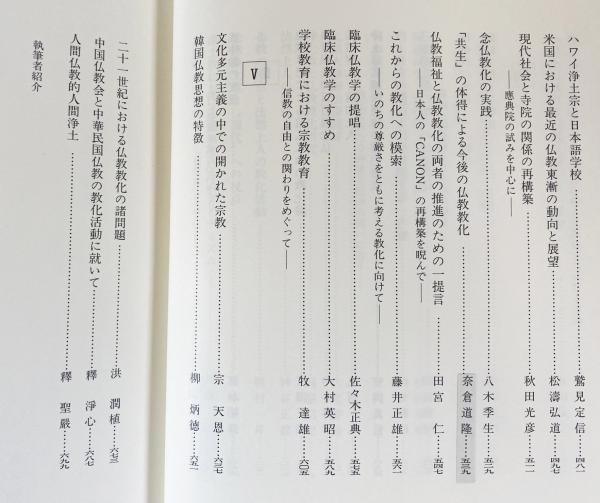 ハワイ浄土宗と日本語学校……鷲見定信…四八一
米国における最近の仏教東漸の動向と展望……松濤弘道…四九七
現代社会と寺院の関係の再構築……秋田光彦…五一一
――應典院の試みを中心に――
念仏教化の実践……八木季生…五二九
「共生」の体得による今後の仏教教化……奈倉道隆…五三九
仏教福祉と仏教教化の両者の推進のための一提言……田宮 仁…五四七
――日本人の「CANON」の再構築を呪んで――
これからの教化への模索……藤井正雄…五六一
――いのちの尊厳さをともに考える教化に向けて――
臨床仏教学の提唱……佐々木正典…五七五
臨床仏教学のすすめ……大村英昭…五八九
学校教育における宗教教育……牧 達雄…六〇五
――信教の自由との関わりをめぐって――
Ⅴ
文化多元主義の中での開かれた宗教……宗 天恩…六三七
韓国仏教思想の特徴……柳 炳德…六五一
二十一世紀における仏教教化の諸問題……洪 潤植…六七三
中国仏教会と中華民国仏教の教化活動に就いて……釋 淨心…六八七
人間仏教的人間浄土……釋 聖嚴…六九九
執筆者紹介